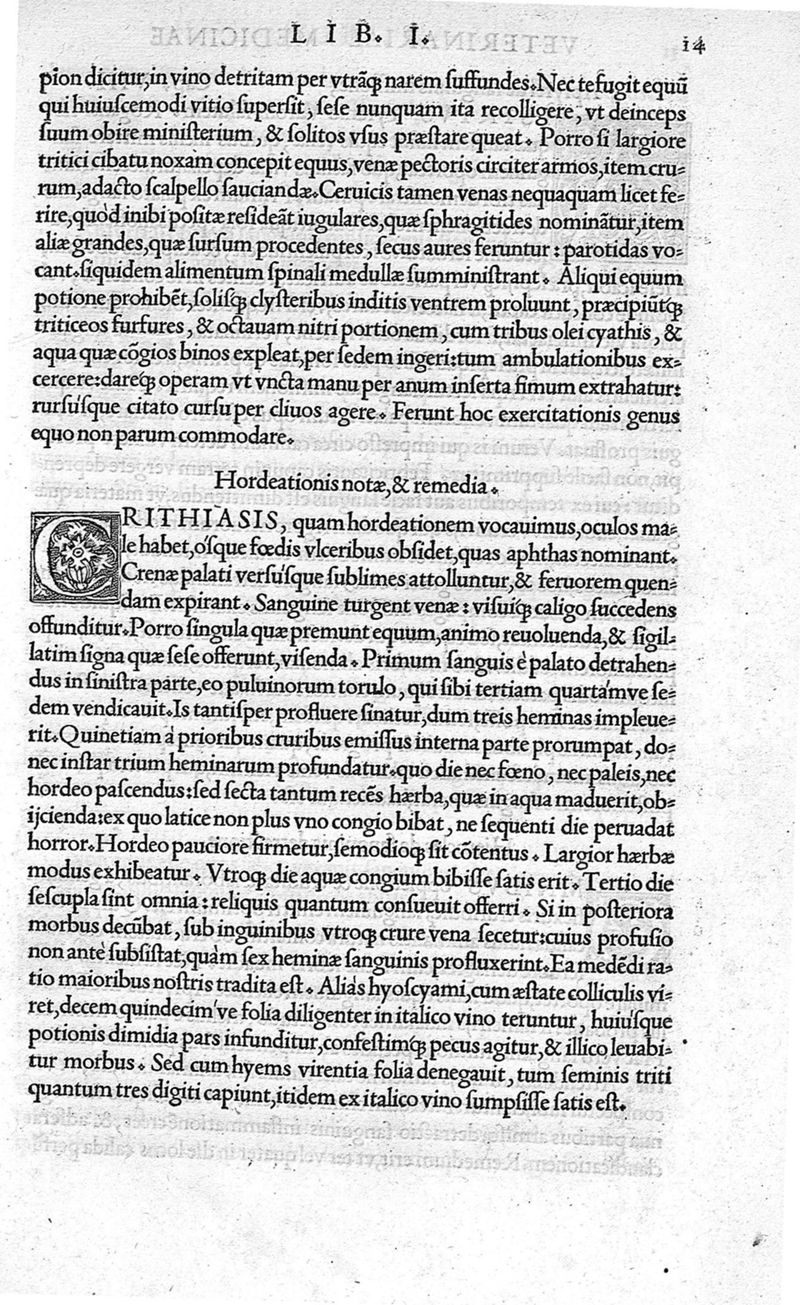 LIB. I. 14
pion dicitur, in vino detritam per vtrãq; narem ſuffundes. Nec te fugit equũ
qui huiuſcemodi vitio ſuperſit, ſeſe nunquam ita recolligere, vt deinceps
ſuum obire miniſterium, & ſolitos vſus præſtare queat. Porro ſi largiore
tritici cibatu noxam concepit equus, venæ pectoris circiter armos, item cru-
rum, adacto ſcalpello ſauciandæ. Ceruicis tamen venas nequaquam licet fe-
rire, quòd inibi poſitæ reſideãt iugulares, quæ ſphragitides nominãtur, item
aliæ grandes, quæ ſurſum procedentes, ſecus aures feruntur: parotidas vo-
cant. ſiquidem alimentum ſpinali medullæ ſumminiſtrant. Aliqui equum
potione prohibẽt, ſoliſq; clyſteribus inditis ventrem proluunt, præcipiũtq;
triticeos furfures, & octauam nitri portionem, cum tribus olei cyathis, &
aqua quæ cõgios binos expleat, per ſedem ingeri: tum ambulationibus ex-
cercere: dareq; operam vt vncta manu per anum inſerta fimum extrahatur:
rurſúſque citato curſu per cliuos agere. Ferunt hoc exercitationis genus
equo non parum commodare.
Hordeationis notæ, & remedia.
CRITHIASIS, quam hordeationem vocauimus, oculos ma-
le habet, óſque fœdis vlceribus obſidet, quas aphthas nominant.
Crenæ palati verſúſque ſublimes attolluntur, & feruorem quen-
dam expirant. Sanguine turgent venæ: viſuiq; caligo ſuccedens
offunditur. Porro ſingula quæ premunt equum, animo reuoluenda, & ſigil-
latim ſigna quæ ſeſe offerunt, viſenda. Primum ſanguis è palato detrahen-
dus in ſiniſtra parte, eo puluinorum torulo, qui ſibi tertiam quartámve ſe-
dem vendicauit. Is tantiſper profluere ſinatur, dum treis heminas impleue-
rit. Quinetiam à prioribus cruribus emiſſus interna parte prorumpat, do-
nec inſtar trium heminarum profundatur. quo die nec fœno, nec paleis, nec
hordeo paſcendus: ſed ſecta tantum recẽs hærba, quæ in aqua maduerit, ob-
ijcienda: ex quo latice non plus vno congio bibat, ne ſequenti die peruadat
horror. Hordeo pauciore firmetur, ſemodioq; ſit cõtentus. Largior hærbæ
modus exhibeatur. Vtroq; die aquæ congium bibiſſe ſatis erit. Tertio die
ſeſcupla ſint omnia: reliquis quantum conſueuit offerri. Si in poſteriora
morbus decũbat, ſub inguinibus vtroq; crure vena ſecetur: cuius profuſio
non antè ſubſiſtat, quàm ſex heminæ ſanguinis profluxerint. Ea medẽdi ra-
tio maioribus noſtris tradita eſt. Aliás hyoſcyami, cum æſtate colliculis vi-
ret, decem quindecim've folia diligenter in italico vino teruntur, huiúſque
potionis dimidia pars infunditur, confeſtimq; pecus agitur, & illico leuabi-
tur morbus. Sed cum hyems virentia folia denegauit, tum ſeminis triti
quantum tres digiti capiunt, itidem ex italico vino ſumpſiſſe ſatis eſt.